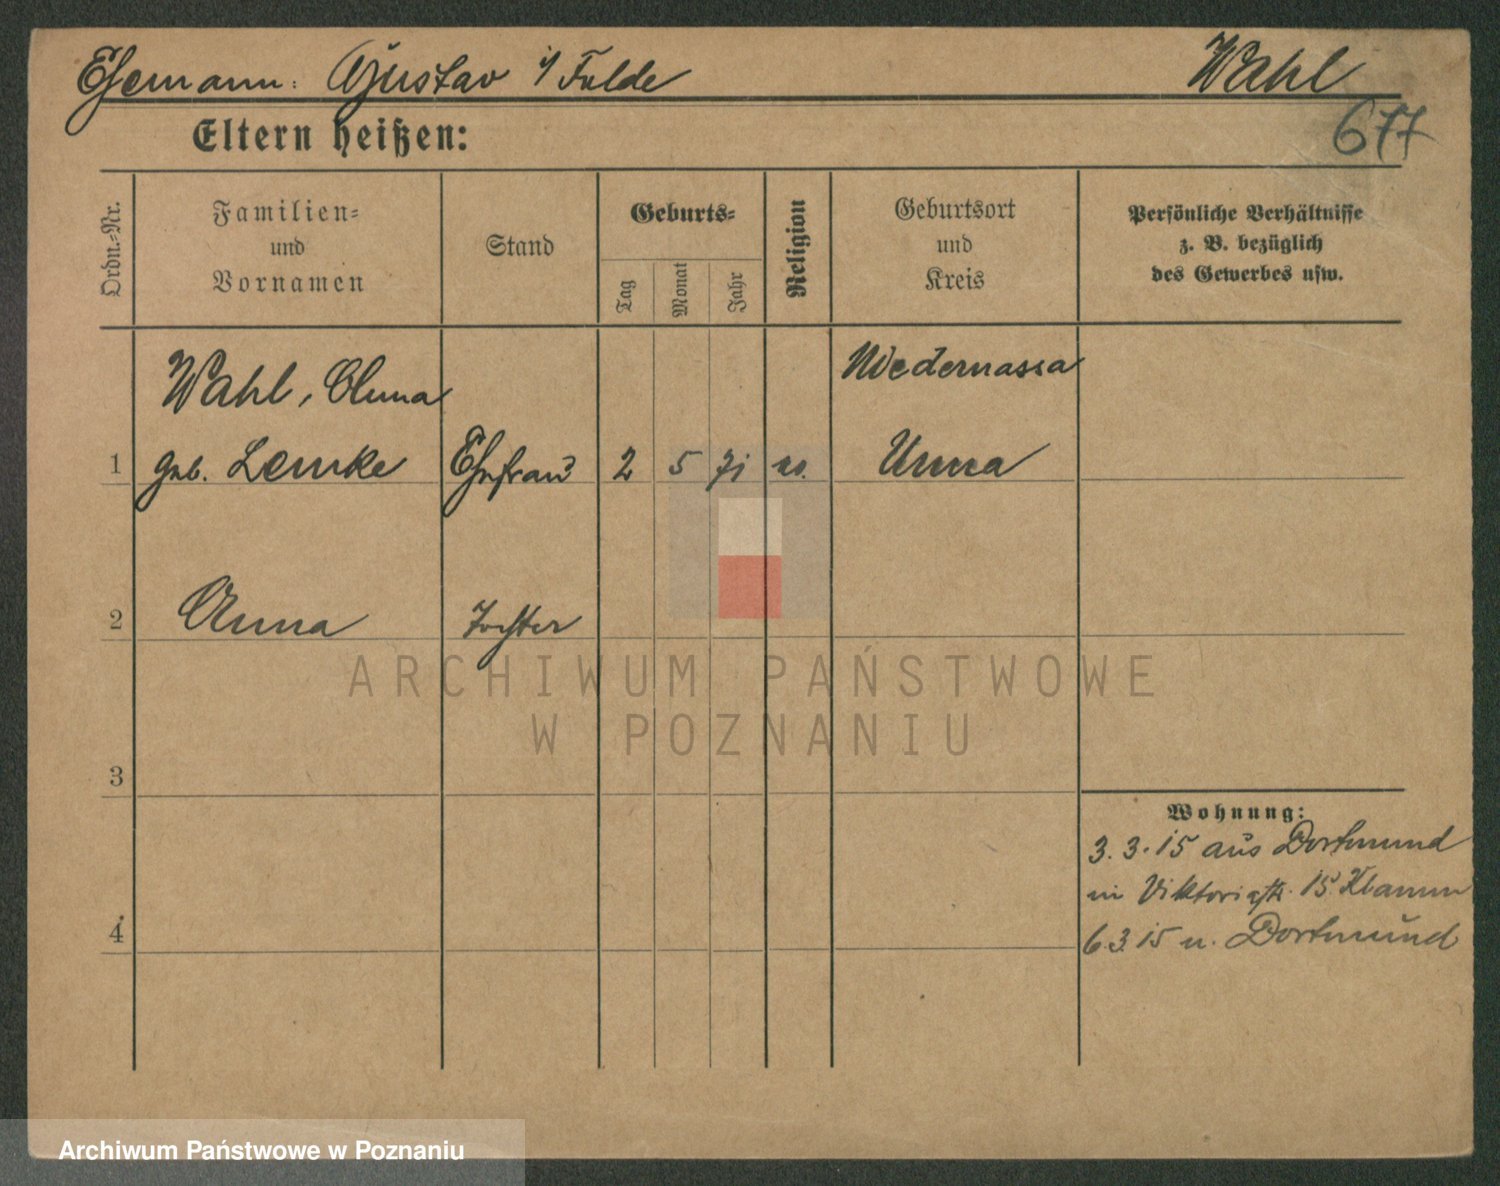 Ehemann: Gustav i/ Felde Wahl
677
Eltern heißen:
Ordn.-Nr.
Familien-
und
Vornamen
Stand
Geburts-
Tag
Monat
Jahr
Religion
Geburtsort
und
Kreis
Persönliche Verhältnisse
z. B. bezüglich
des Gewerbes usw.
Wahl, Anna Niedermassen
1 geb. Lemke Ehefrau 2 5 71 ev. Unna
2 Anna Tochter
3
Wohnung:
3.3.15 aus Dortmund
in Viktoriastr. 15
4 6.3.15 n. Dortmund
ARCHIWUM PAŃSTWOWE
W POZNANIU
Archiwum Państwowe w Poznaniu